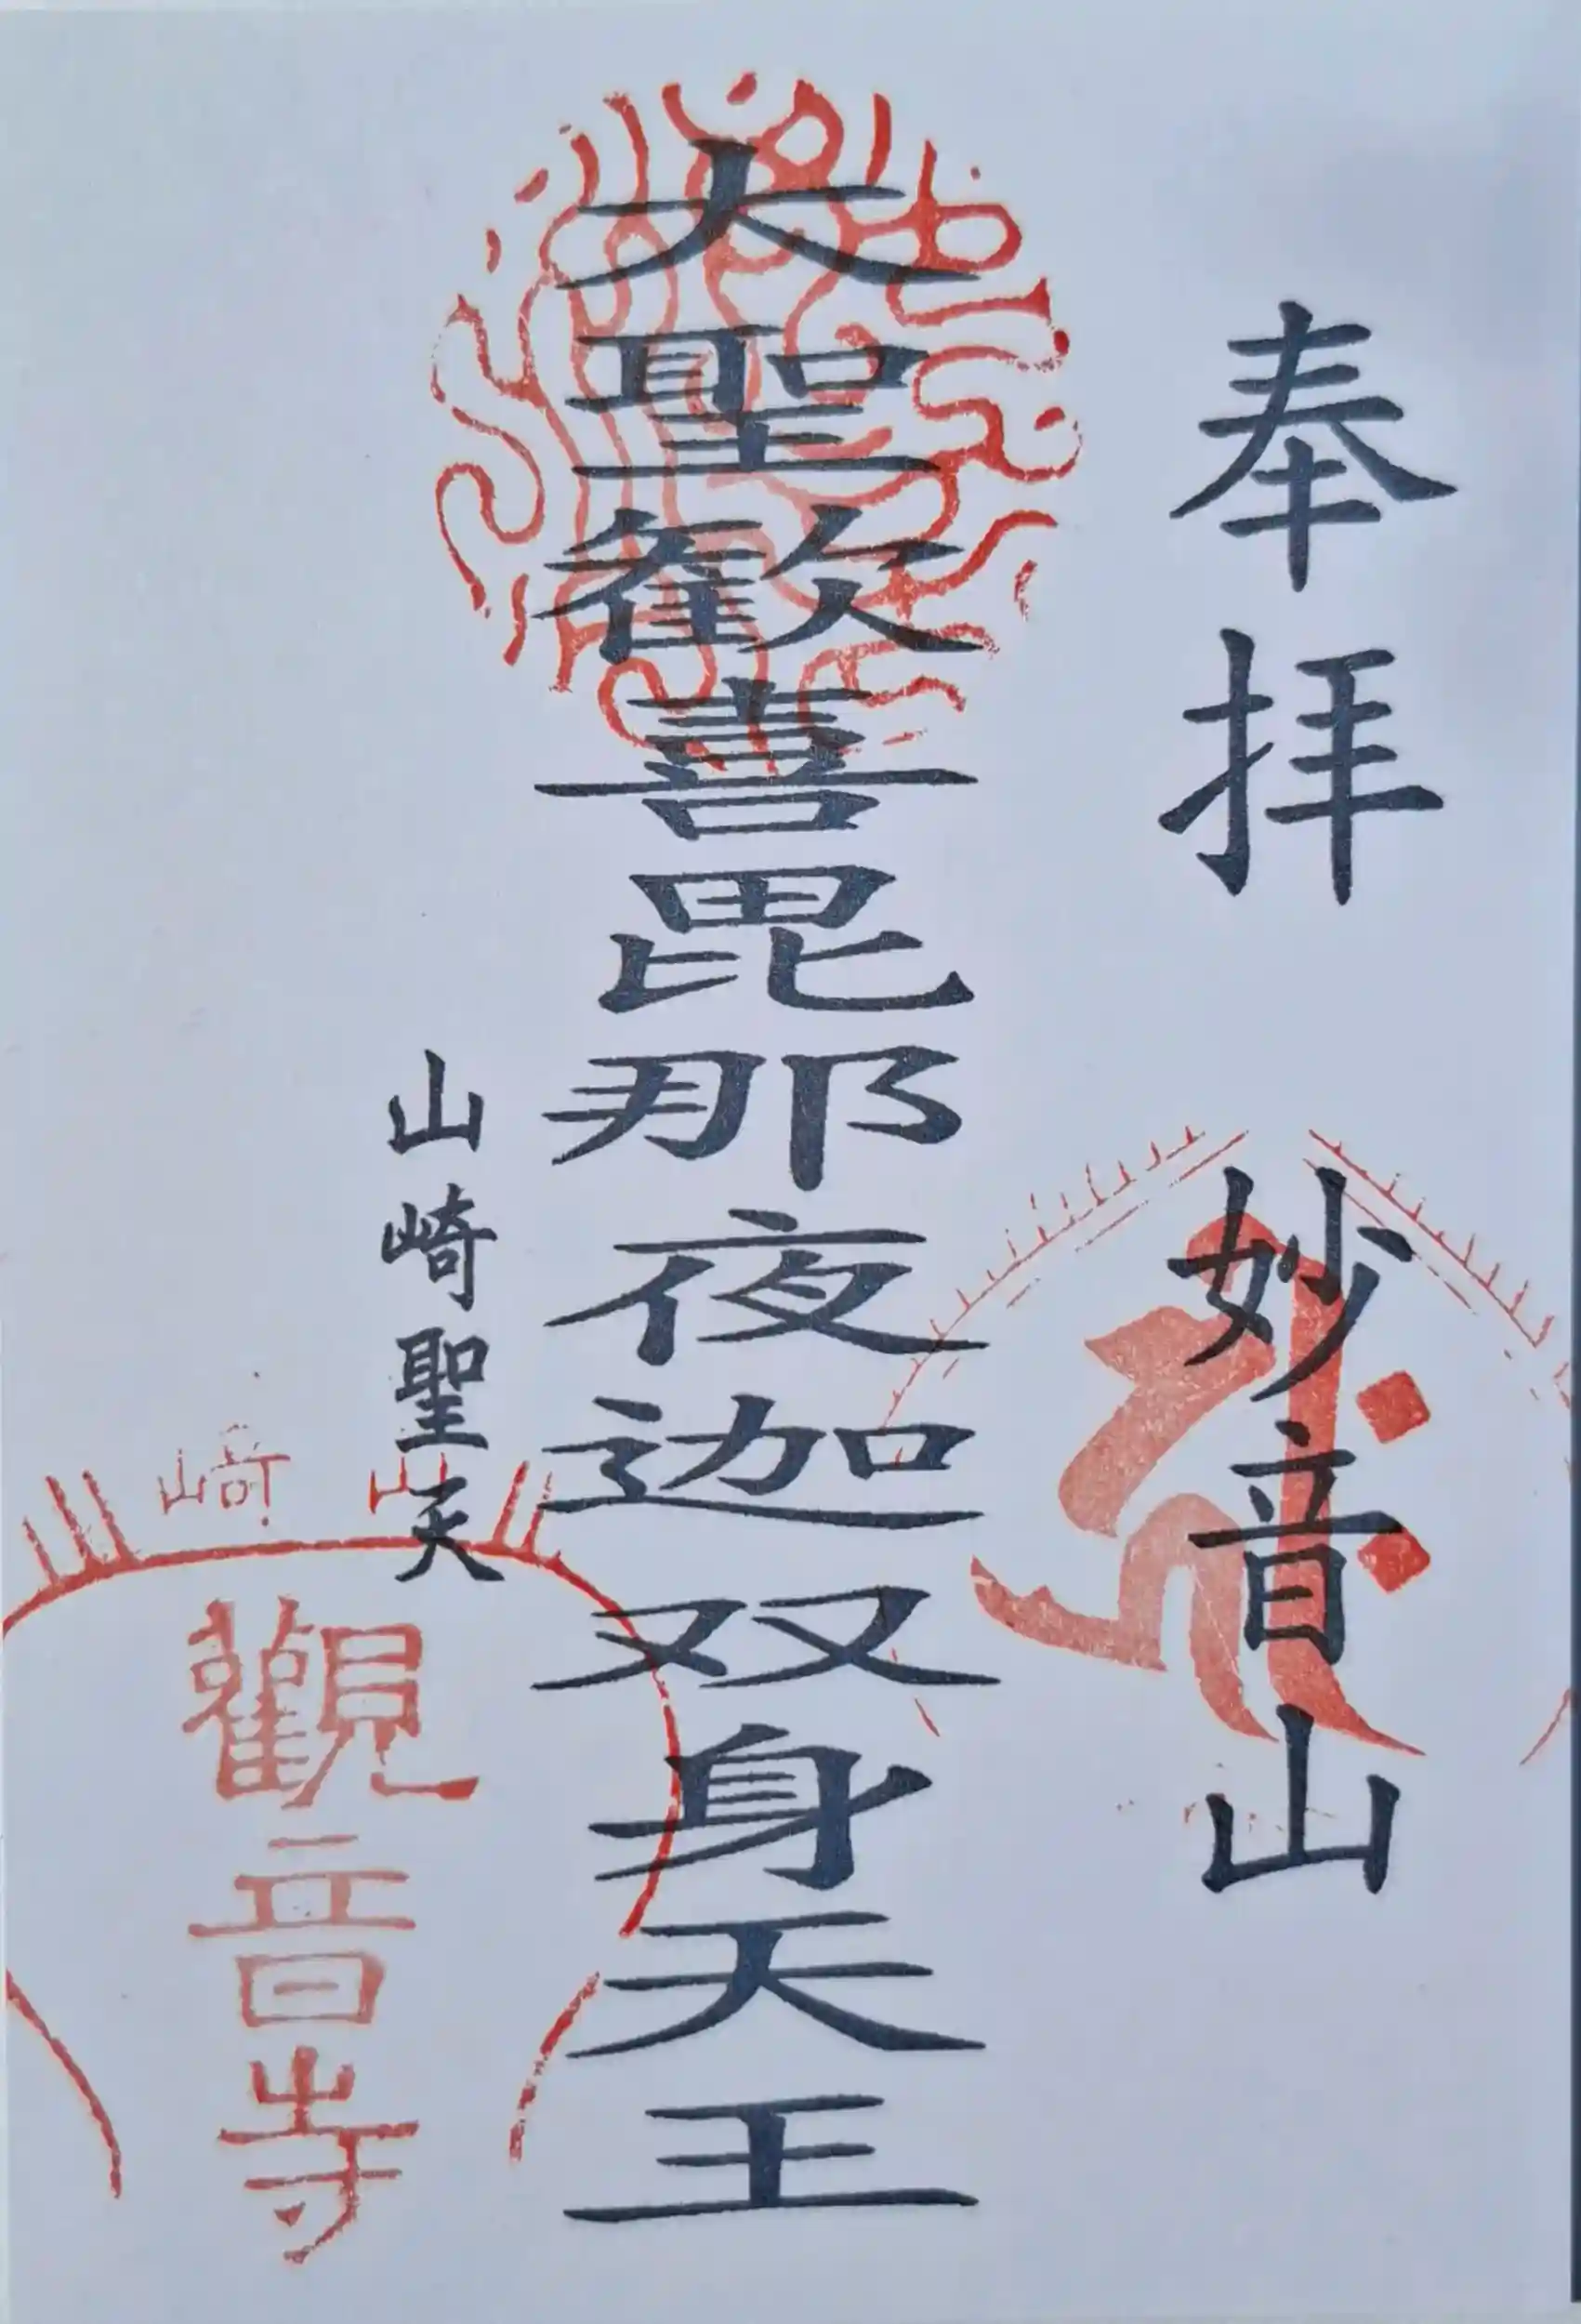 奉拝 妙音山
大聖歓喜毘那夜迦双身天王
山崎聖天
山崎
觀音寺